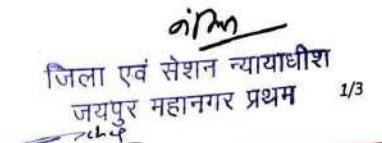 जिला एवं सेशन न्यायाधीश
जयपुर महानगर प्रथम 1/3